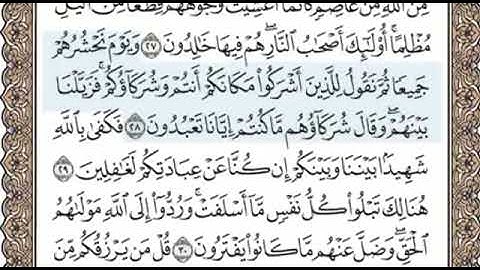 مِّنَ ٱللَّهِ مِنۡ عَاصِمٖۖ كَأَنَّمَآ أُغۡشِيَتۡ وُجُوهُهُمۡ قِطَعٗا مِّنَ ٱلَّيۡلِ
مُظۡلِمًاۚ أُوْلَٰٓئِكَ أَصۡحَٰبُ ٱلنَّارِۖ هُمۡ فِيهَا خَٰلِدُونَ ٢٧ وَيَوۡمَ نَحۡشُرُهُمۡ
جَمِيعٗا ثُمَّ نَقُولُ لِلَّذِينَ أَشۡرَكُواْ مَكَانَكُمۡ أَنتُمۡ وَشُرَكَآؤُكُمۡۚ فَزَيَّلۡنَا
بَيۡنَهُمۡۖ وَقَالَ شُرَكَآؤُهُم مَّا كُنتُمۡ إِيَّانَا تَعۡبُدُونَ ٢٨ فَكَفَىٰ بِٱللَّهِ
شَهِيدَۢا بَيۡنَنَا وَبَيۡنَكُمۡ إِن كُنَّا عَنۡ عِبَادَتِكُمۡ لَغَٰفِلِينَ ٢٩
هُنَالِكَ تَبۡلُواْ كُلُّ نَفۡسٖ مَّآ أَسۡلَفَتۡۚ وَرُدُّوٓاْ إِلَى ٱللَّهِ مَوۡلَىٰهُمُ
ٱلۡحَقِّۖ وَضَلَّ عَنۡهُم مَّا كَانُواْ يَفۡتَرُونَ ٣٠ قُلۡ مَن يَرۡزُقُكُم مِّنَ